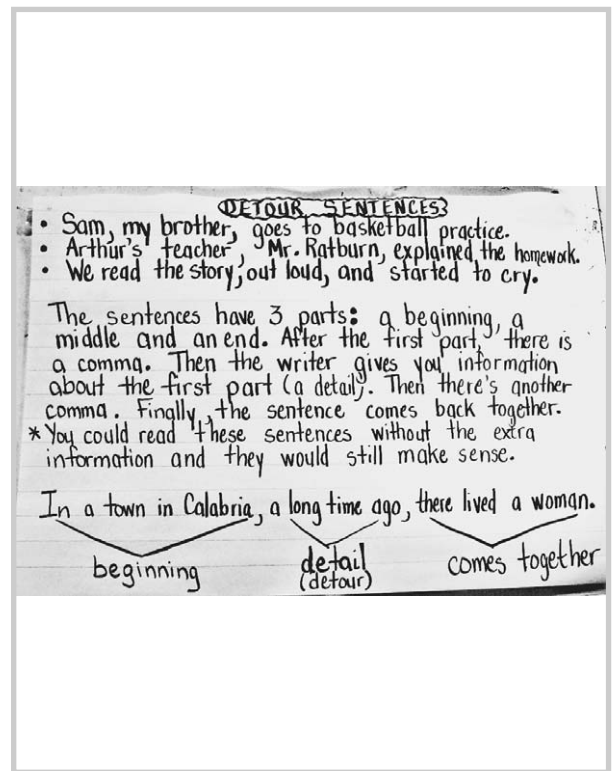 DETOUR SENTENCES
• Sam, my brother, goes to basketball practice.
• Arthur's teacher, Mr. Ratburn, explained the homework.
• We read the story, out loud, and started to cry.
The sentences have 3 parts: a beginning, a
middle and an end. After the first part, there is
a comma. Then the writer gives you information
about the first part (a detail). Then there's another
comma. Finally, the sentence comes back together.
* You could read these sentences without the extra
information and they would still make sense.
In a town in Calabria, a long time ago, there lived a woman.
beginning detail comes together
(detour)